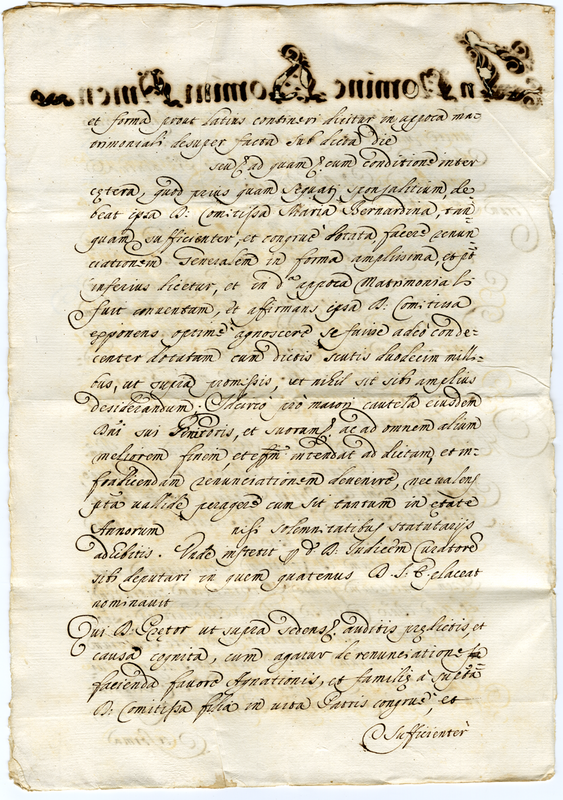 In Nomine Domini Amen
et forma prout latius contineri dicitur in appoca ma-
trimoniali desuper facta sub dicta die
seu ad quam cum conditione inter
cętera, quod prius quam sequatj sponsalitium, de
beat ipsa D. Comitissa Maria Bernardina, tan
quam sufficienter, et congruè dotata, facere renun
ciationem Generalem in forma amplissima et pt
inferius dicetur, et in dª appoca Matrimoniali
fuit conventum, et affirmans ipsa D. Comitissa
exponens optimè agnoscere se fuisse adeò conde-
center dotatam cum dictis scutis duodecim milli-
bus, ut supra promissis, et nihil sit sibi amplius
desiderandum; Idcircò prò maiori cautela eiusdem
Dñi sui Genitoris, et suorum, ac ad omnem alium
meliorem finem, et intendat ad dictam, et in-
frascicendam renunciationem devenire, nec valens
ipsa vallidè peragere cum sit tantum in ętate
Annorum nisi solemnitatibus statutarijs
adhibitis. Unde institit D. Iudicem Curatorem
sibi deputari in quem quatenus D. S. E. placeat
nominavit
Qui D. Pretor ut supra sedens, auditis prędictis, et
causa cognita, cum agatur de renunciatione
facienda favore Agnationis, et familię à suptâ
D. Comitissa filia in vita Patris congruè, et
sufficienter